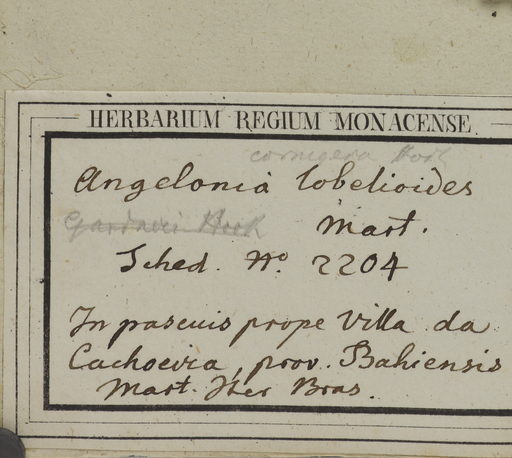 HERBARIUM REGIUM MONACENSE
cornigera Hook
Angelonia lobelioides
Gardneri Hook Mart.
Sched. No. 2204
In pascuis prope Villa da
Cachoeira, prov. Bahiensis
Mart. Iter Bras.